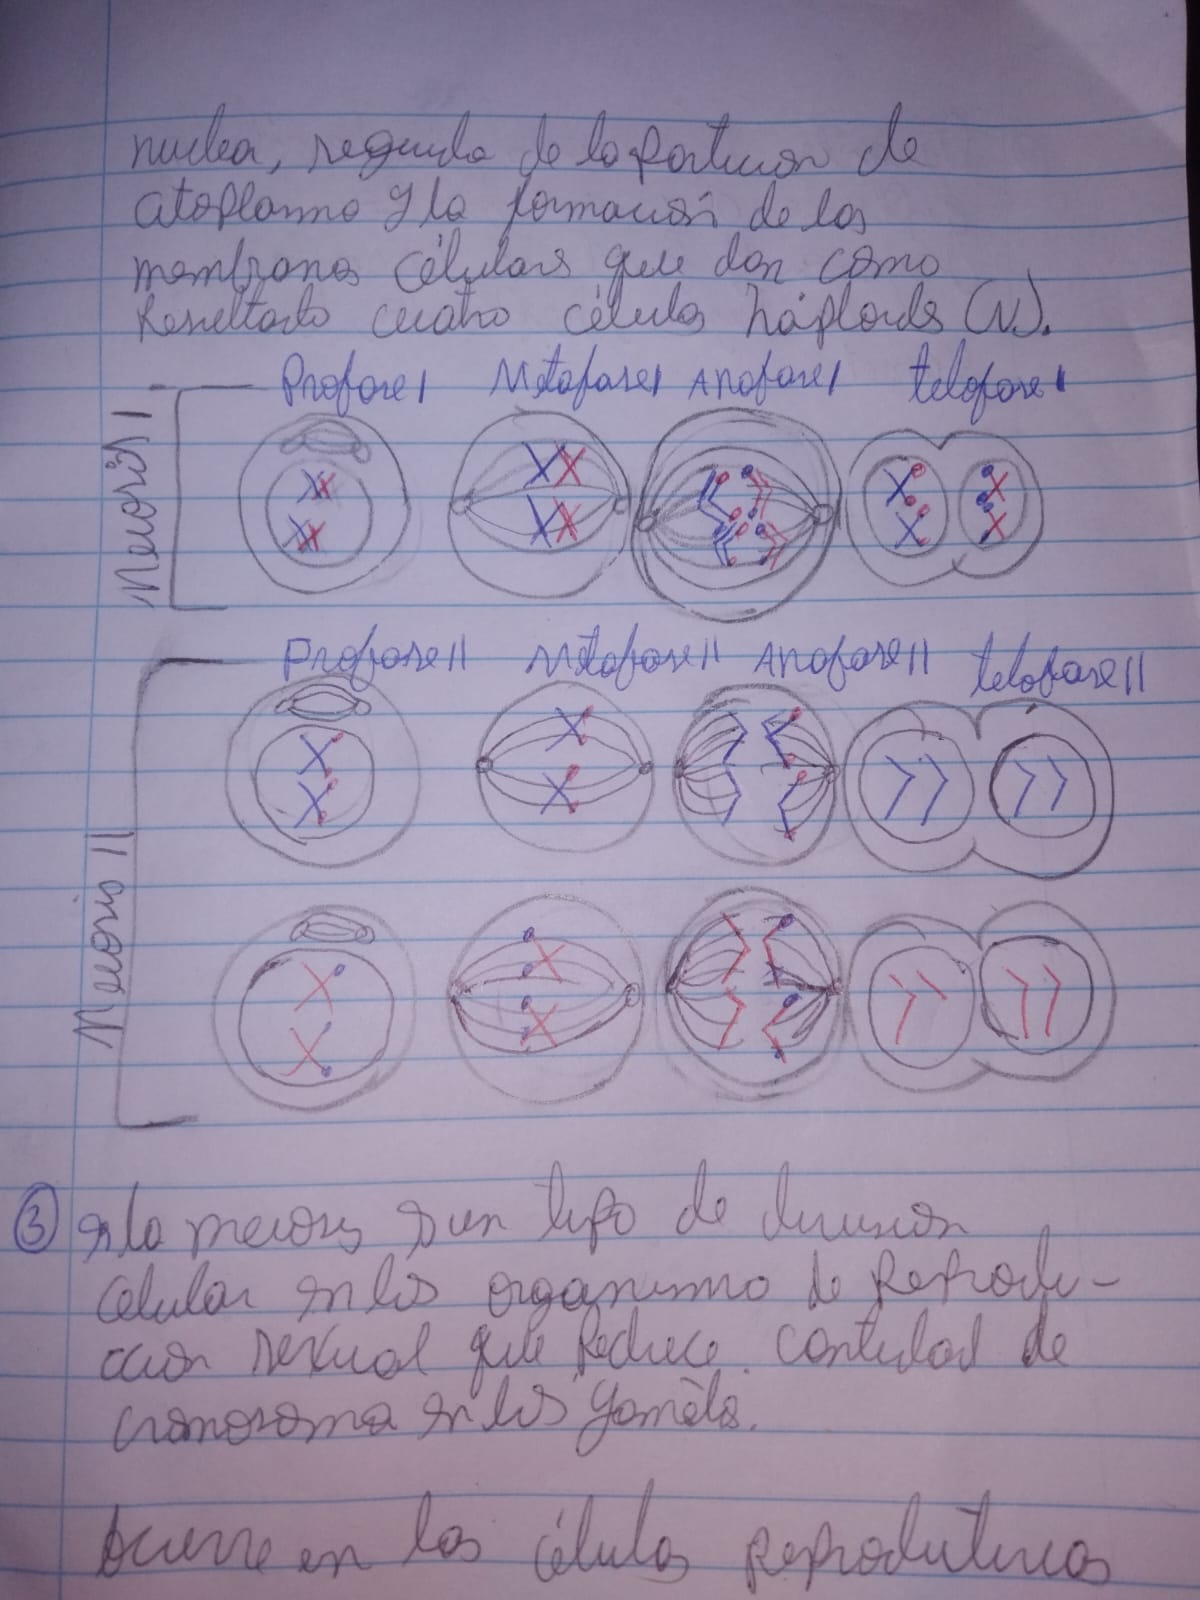 nuclear, seguida de la particion de
citoplasma y la formación de las
membranas célulars que dan como
Resultado cuatro célula háploide (N).
Profase I Metafase I Anafase I telofase I
Meiosis I
Profase II Metafase II Anafase II telofase II
Meiosis II
③ la meiosis es un tipo de division
Célular en los organismo de Reprodu-
ccion sexual que Reduce cantidad de
cromosoma en los gaméto.
Ocurre en las células Reproductivas